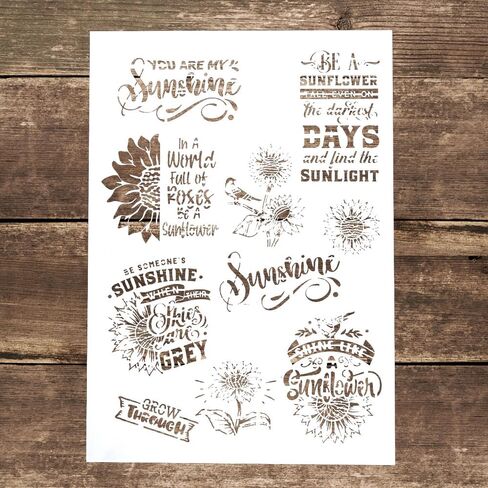 YOU ARE MY
Sunshine
BE A
SUNFLOWER
TALL EVEN ON
the darkest
DAYS
and find the
SUNLIGHT
IN A
World
Full of
ROSES
BE A
Sunflower
BE SOMEONE'S
SUNSHINE
WHEN THEIR
Skies
are
GREY
Sunshine
SHINE LIKE
A
Sunflower
GROW
THROUGH